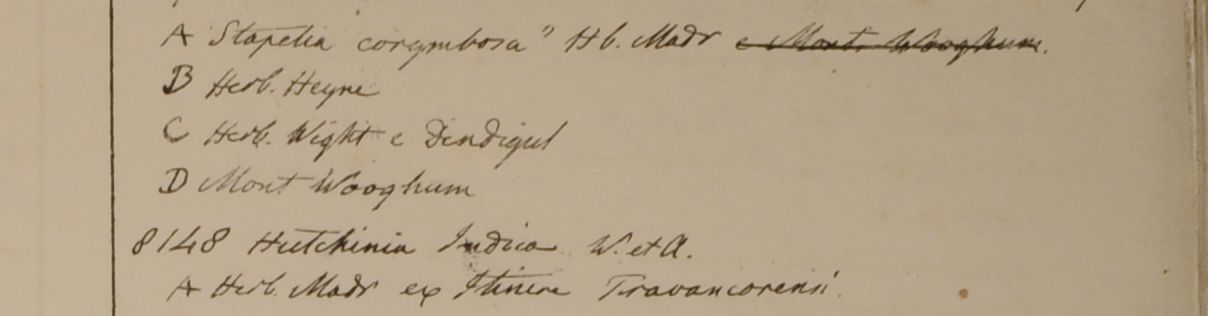 A Stapelia corymbosa" Hb. Madr e Mont. Wooghum.
B Herb. Heyne
C Herb. Wight e Dindigul
D Mont Wooghum
8148 Hutchinia Indica W. et A.
A Herb. Madr ex Itinere Travancorensi.